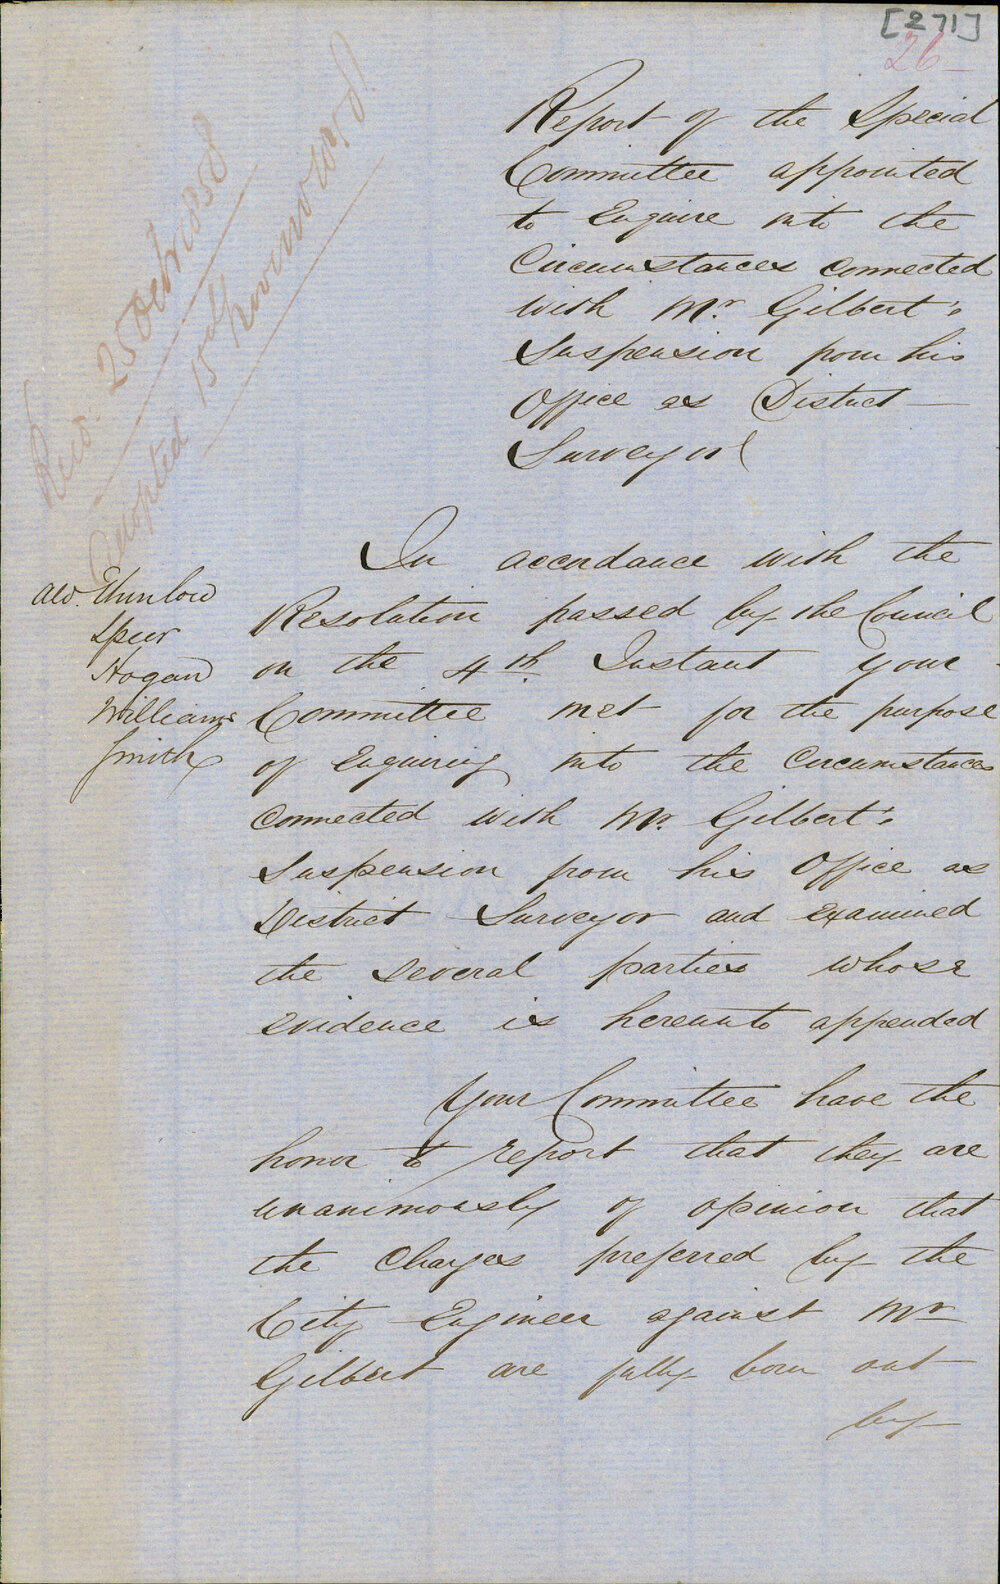 [271]
26
Recd. 25 Octbr 1858
Adopted 15th Novemr 1858
Report of the Special
Committee appointed
to Enquire into the
Circumstances connected
with Mr. Gilbert's
Suspension from his
Office as District
Surveyor
In accordance with the
Resolution passed by the Council
on the 4th. Instant your
Committee met for the purpose
of Enquiring into the Circumstances
connected with Mr. Gilbert's
Suspension from his Office as
District Surveyor and examined
the several parties whose
evidence is hereunto appended
Ald. Thurlow
Speer
Hogan
Williams
Smith
Your Committee have the
honor to report that they are
unanimously of opinion that
the Charges preferred by the
City Engineer against Mr
Gilbert are fully born out
by